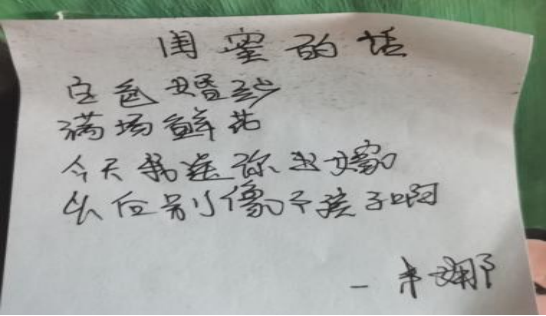 闺蜜的话
白色婚纱
满场鲜花
今天我送你出嫁
以后别像个孩子啊
—朱娜